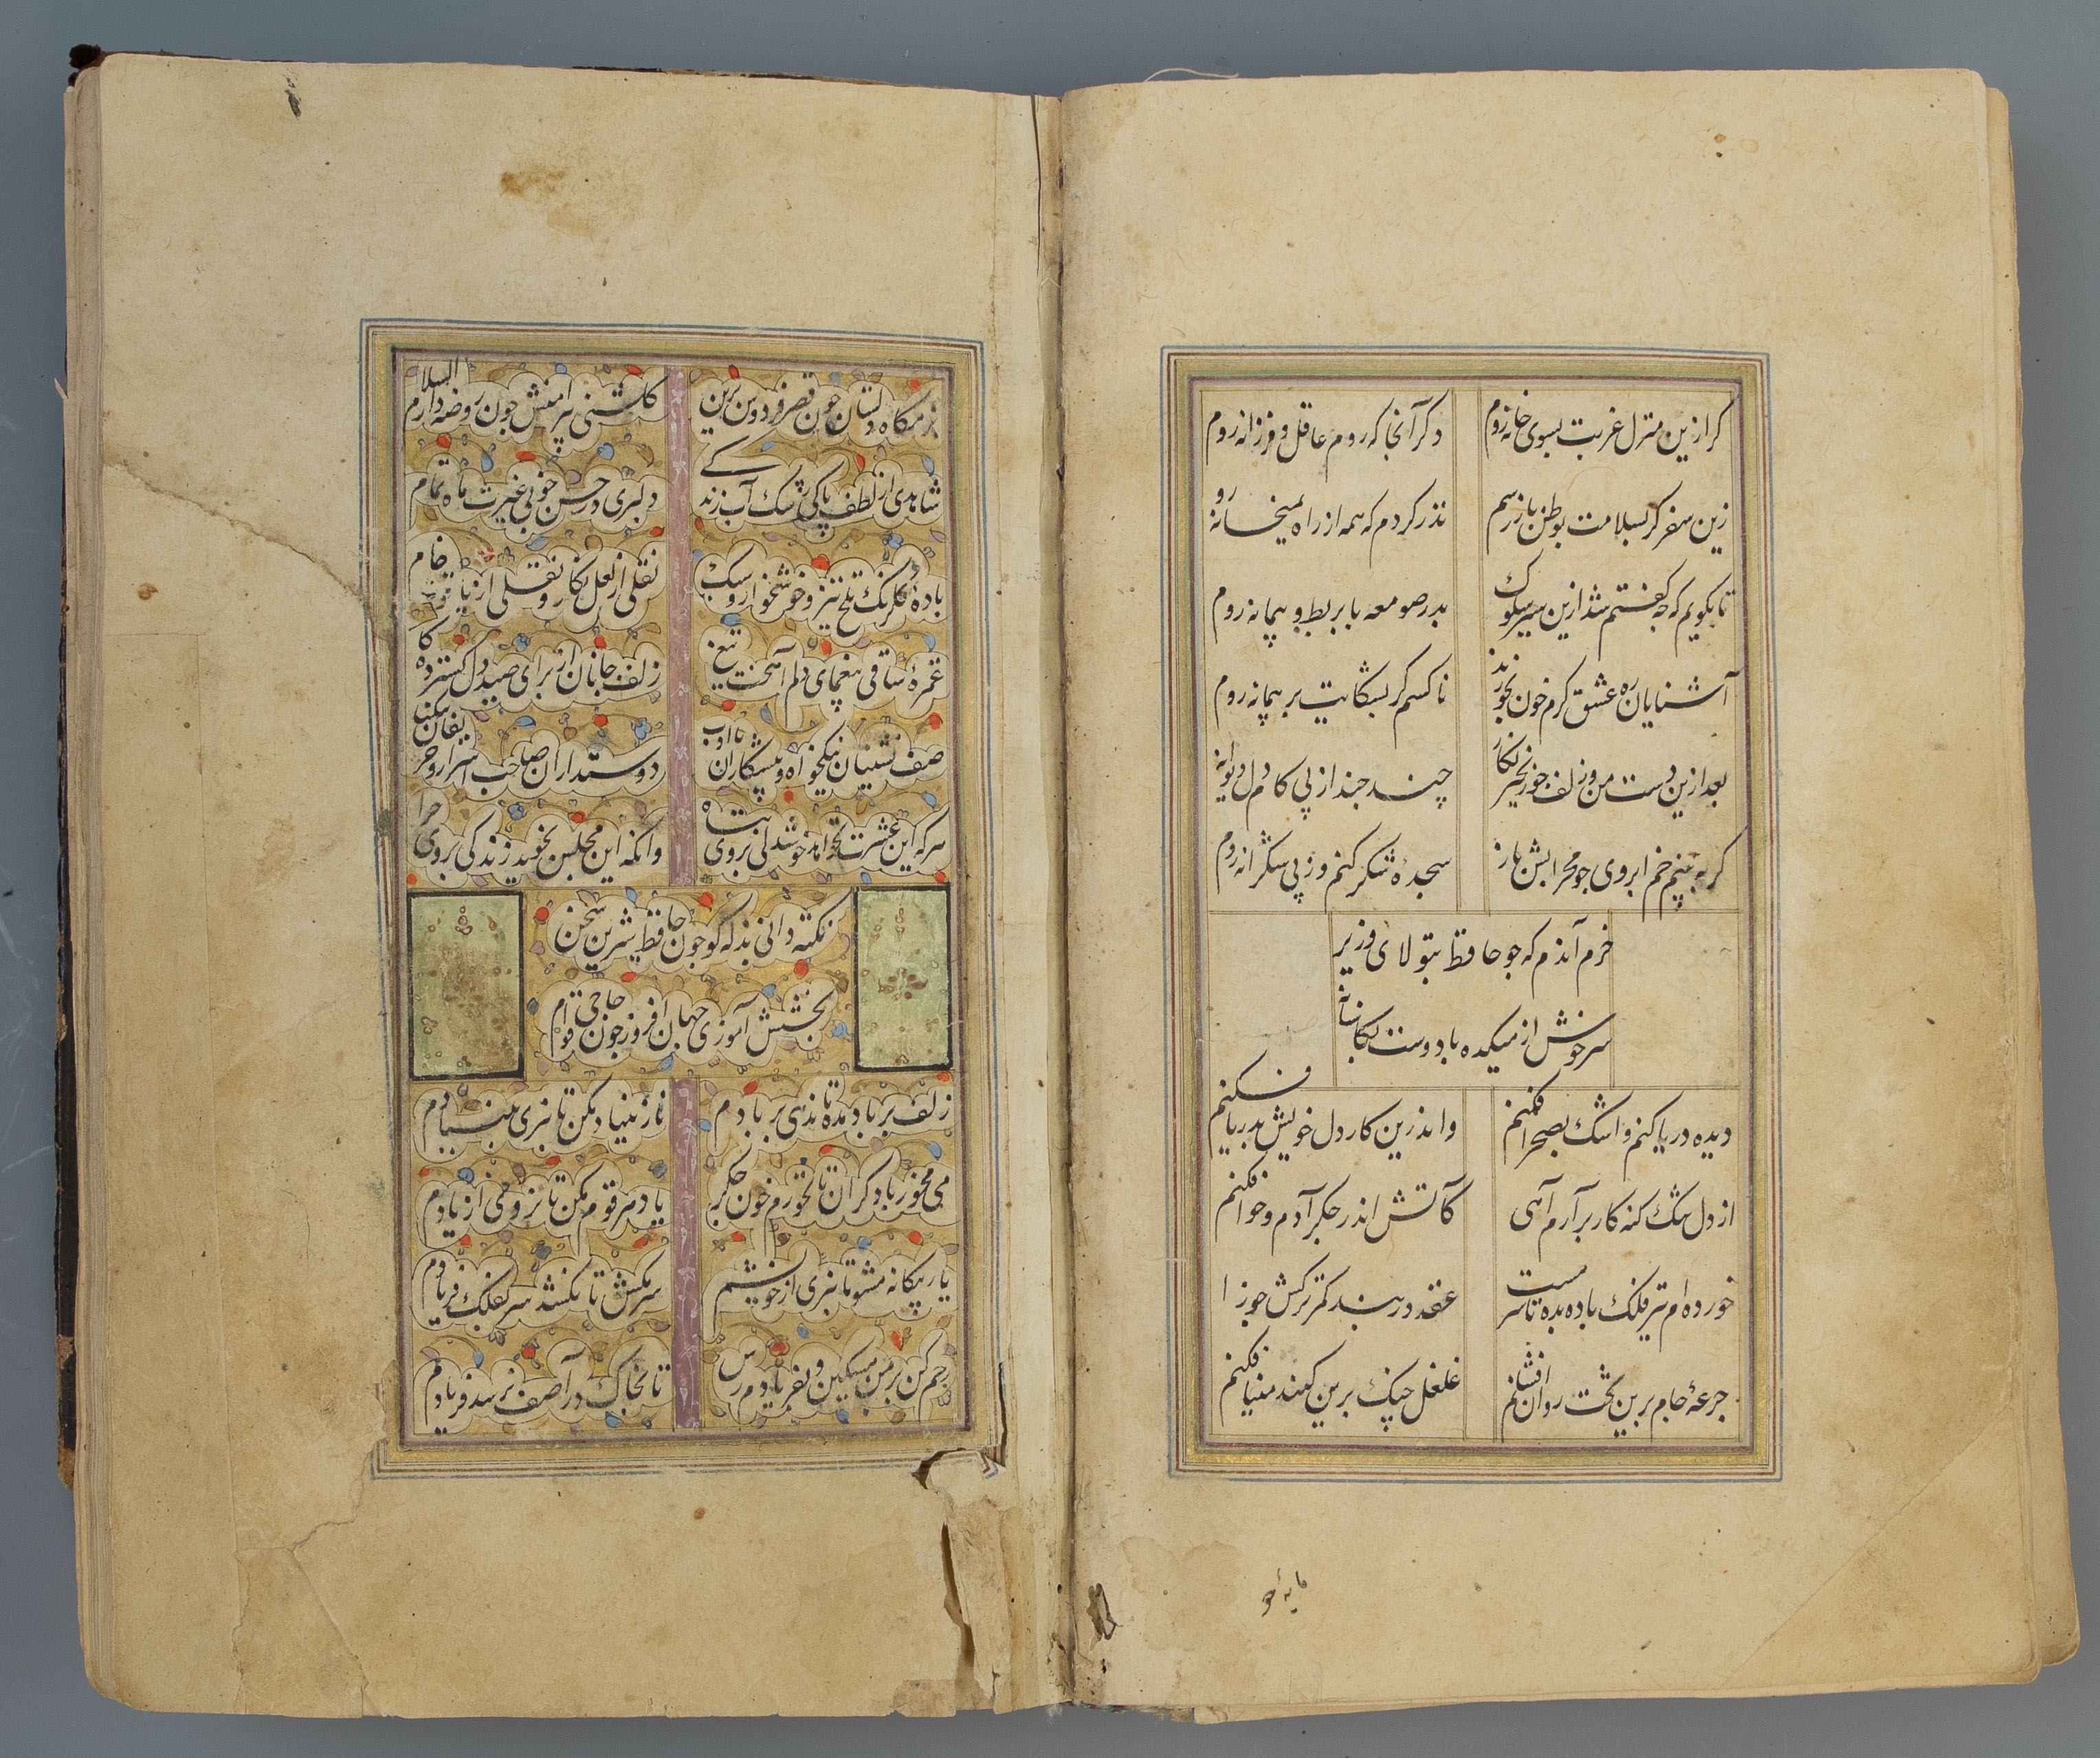 کر ازین منزل غربت بسوی خانه روم دکر آنجا که روم عاقل و فرزانه روم
زین سفر کر بسلامت بوطن باز رسم نذر کردم که همه از راه بمیخانه رو
تا بکویم که چه کفتم شد ازین سیر سلوک بدر صومعه با بربط و پیمانه روم
آشنایان ره عشق کرم خون بخورند ناکسم کر بشکایت بر پیمانه روم
بعد ازین دست من و زلف جو زنجیر نکار چند جند از پی کام دل دیوانه
کر به بینم خم ابروی جو محرابش باز سجدهٔ شکر کنم وز پی شکرانه روم
خرم آندم که جو حافظ بتولای وزیر
سرخوش از میکده با دوست بکاشانه
دیده دریا کنم و اشک بصحرا فکنم واندرین کار دل خویش بدریا فکنم
از دل تنک کنه کار برآرم آهی کآتش اندر جکر آدم و حوا فکنم
خورده ام تیر فلک باده بده تا سرمست عقده در بند کمر ترکش جوزا
جرعهٔ جام برین تخت روان افشانم غلغل چنک برین کنبد مینا فکنم
مایهٔ خو
بزمکاه دلستان جون قصر فردوس برین کلشنی پیرامنش جون روضه دارالسلام
شاهدی از لطف پاکی رشک آب زندکی دلبری در حسن خوبی غیرت ماه تمام
بادهٔ کلرنک تلخ تیز و خوشخوار و سبک نقلی از لعل نکار و نقلی از یاقوت خام
غمزهٔ ساقی بیغمای دلم آهخت تیغ زلف جانان از برای صید دل کسترده دام
صف نشینان نیکخواه و پیشکاران با ادب دوستداران صاحب اسرار و حریفان
هرکه این عشرت نخواهد خوشدلی بروی تبه وانکه این مجلس نجوید زندکی بروی حرام
نکته دانی بذله کو جون حافظ شیرین سخن
بخشش آموزی جهان افروز جون حاجی قوام
زلف بر باد مده تا ندهی بر بادم ناز بنیاد مکن تا نبری بنیادم
می مخور با دکران تا نخورم خون جکر یاد هر قوم مکن تا نروی از یادم
یار بیکانه مشو تا نبری از خویشم سر مکش تا نکشد سر بفلک فریادم
رحم کن بر من مسکین و بفریادم رس تا بخاک در آصف نرسد فریادم